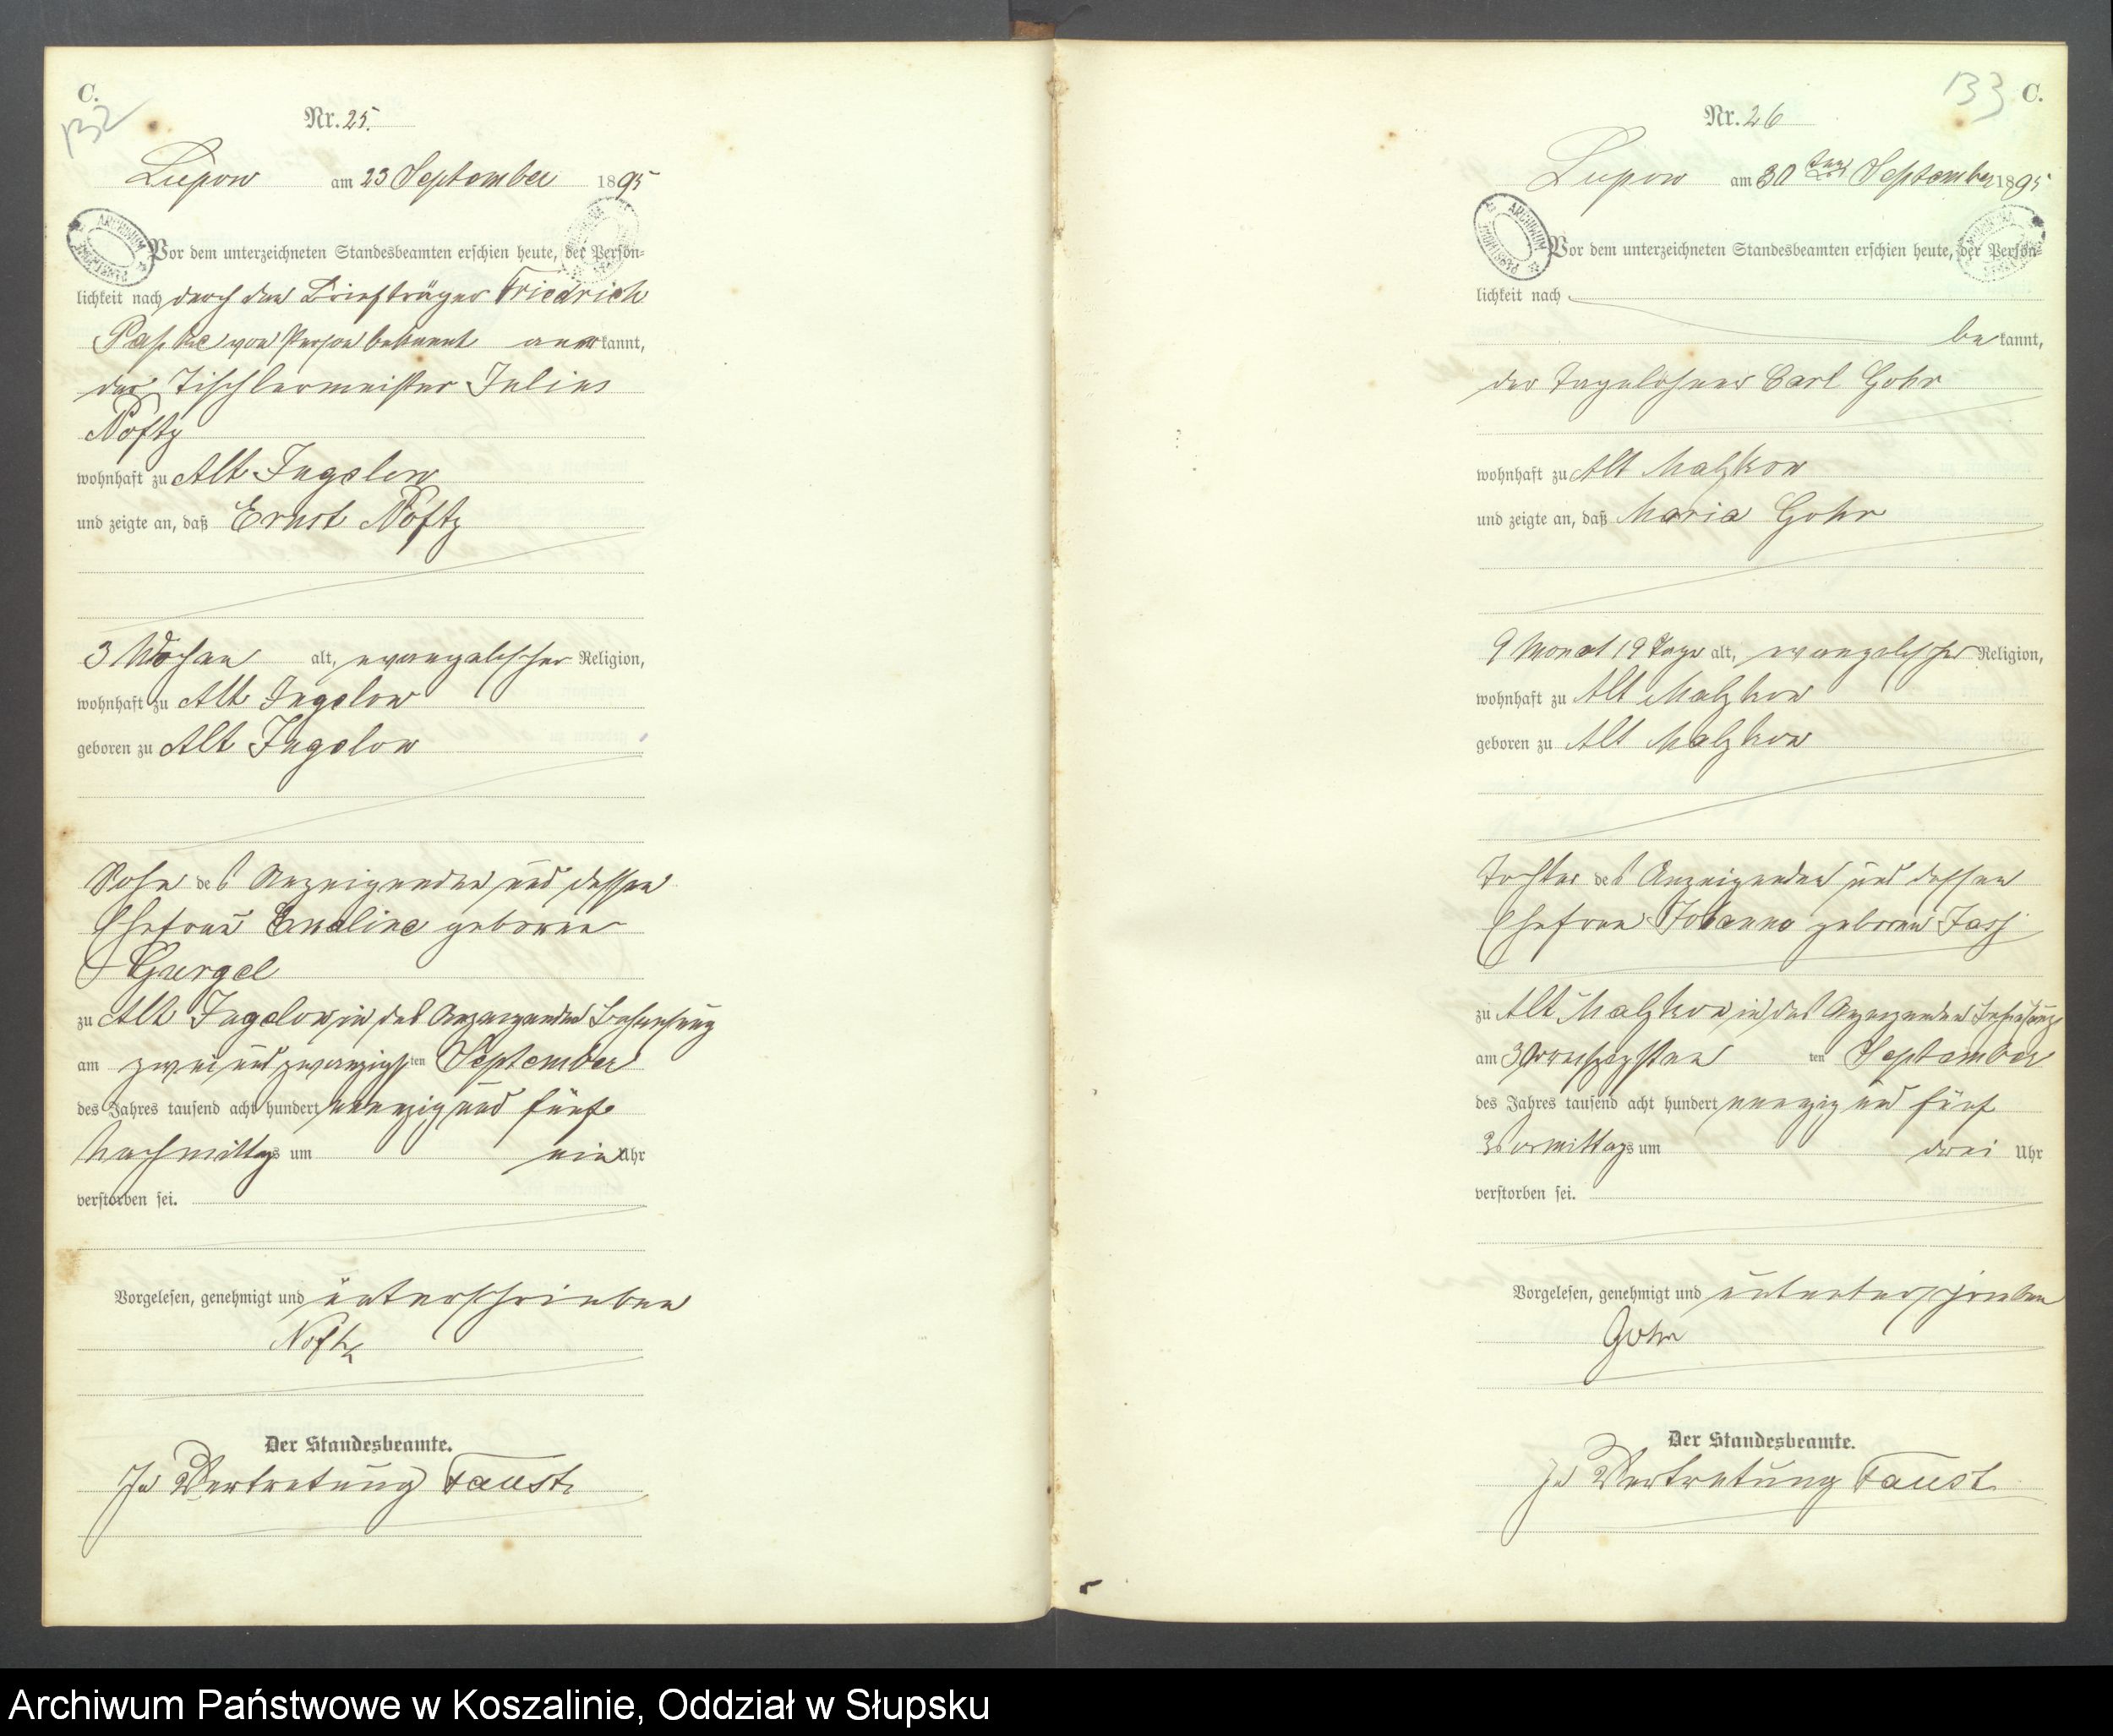 C.
132
Nr. 25.
Lupow am 23 September 1895
ARCHIWUM PAŃSTWOWE
Vor dem unterzeichneten Standesbeamten erschien heute, der Persön-
lichkeit nach durch den Briefträger Friedrich
Papke von Person bekannt anerkannt,
der Tischlermeister Julius
Nöftz
wohnhaft zu Alt Jugelow
und zeigte an, daß Ernst Nöftz
3 Wochen alt, evangelischer Religion,
wohnhaft zu Alt Jugelow
geboren zu Alt Jugelow
Sohn des Anzeigenden und dessen
Ehefrau geborene
Gurgel
zu Alt Jugelow in des Anzeigenden Behausung
am zwei und zwanzigsten September
des Jahres tausend acht hundert neunzig und fünf
Nachmittags um ein Uhr
verstorben sei.
Vorgelesen, genehmigt und unterschrieben
Nöftz
Der Standesbeamte.
In Vertretung Faust
133 C.
Nr. 26
Lupow am 30ten September 1895
ARCHIWUM PAŃSTWOWE
Vor dem unterzeichneten Standesbeamten erschien heute, der Persön-
lichkeit nach
bekannt,
der Tagelöhner Carl Gohr
wohnhaft zu Alt Malzkow
und zeigte an, daß Maria Gohr
9 Monat 19 Tage alt, evangelischer Religion,
wohnhaft zu Alt Malzkow
geboren zu Alt Malzkow
Tochter des Anzeigenden und dessen
Ehefrau geboren
zu Alt Malzkow in des Anzeigenden Behausung
am ten September
des Jahres tausend acht hundert neunzig und fünf
Vormittags um drei Uhr
verstorben sei.
Vorgelesen, genehmigt und
Gohr
Der Standesbeamte.
In Vertretung Faust
Archiwum Państwowe w Koszalinie, Oddział w Słupsku